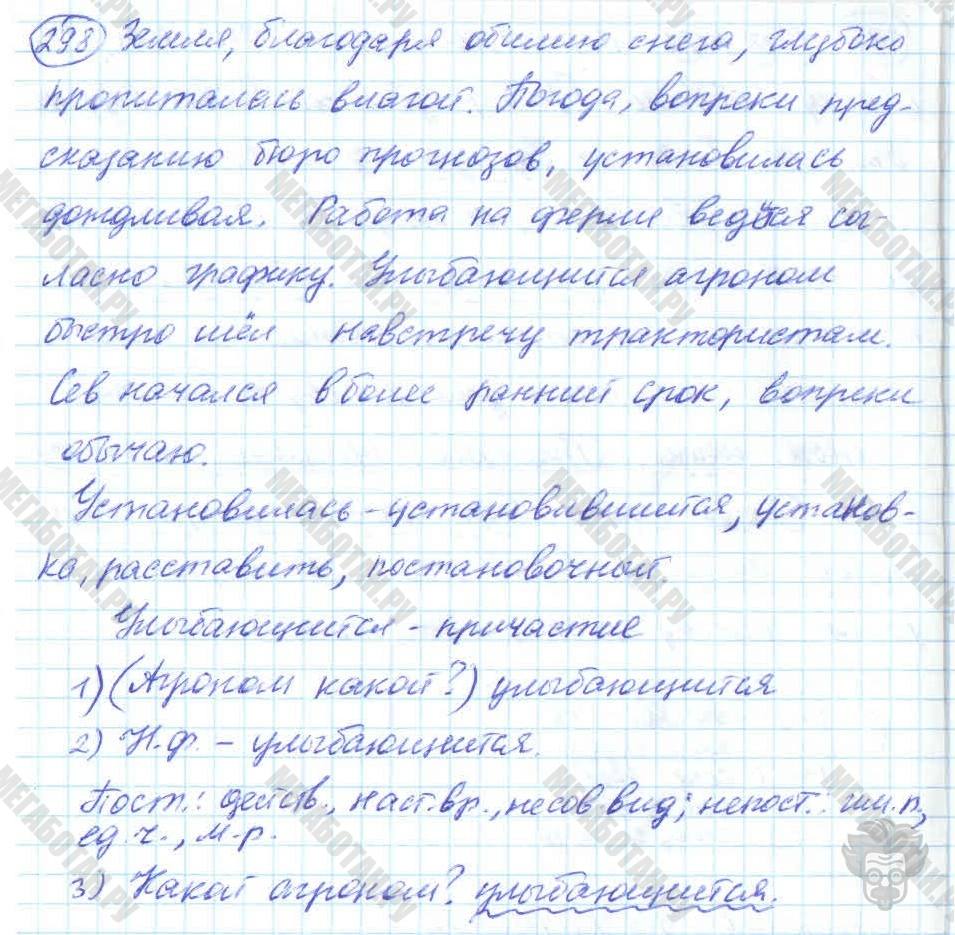 298 Земля, благодаря обилию снега, глубоко
пропиталась влагой. Погода, вопреки пред-
сказанию бюро прогнозов, установилась
дождливая. Работа на ферме ведётся сог-
ласно графику. Улыбающийся агроном
быстро шёл навстречу трактористам.
Сев начался в более ранний срок, вопреки
обычаю.
Установилась - установившийся, установ-
ка, расставить, постановочный
Улыбающийся - причастие
1) (Агроном какой?) улыбающийся
2) Н.ф. - улыбающийся.
Пост.: действ., наст.вр., несов.вид; непост.: им.п.,
ед.ч., м.р.
3) Какой агроном? улыбающийся.
МЕГАБОТАН.РУ